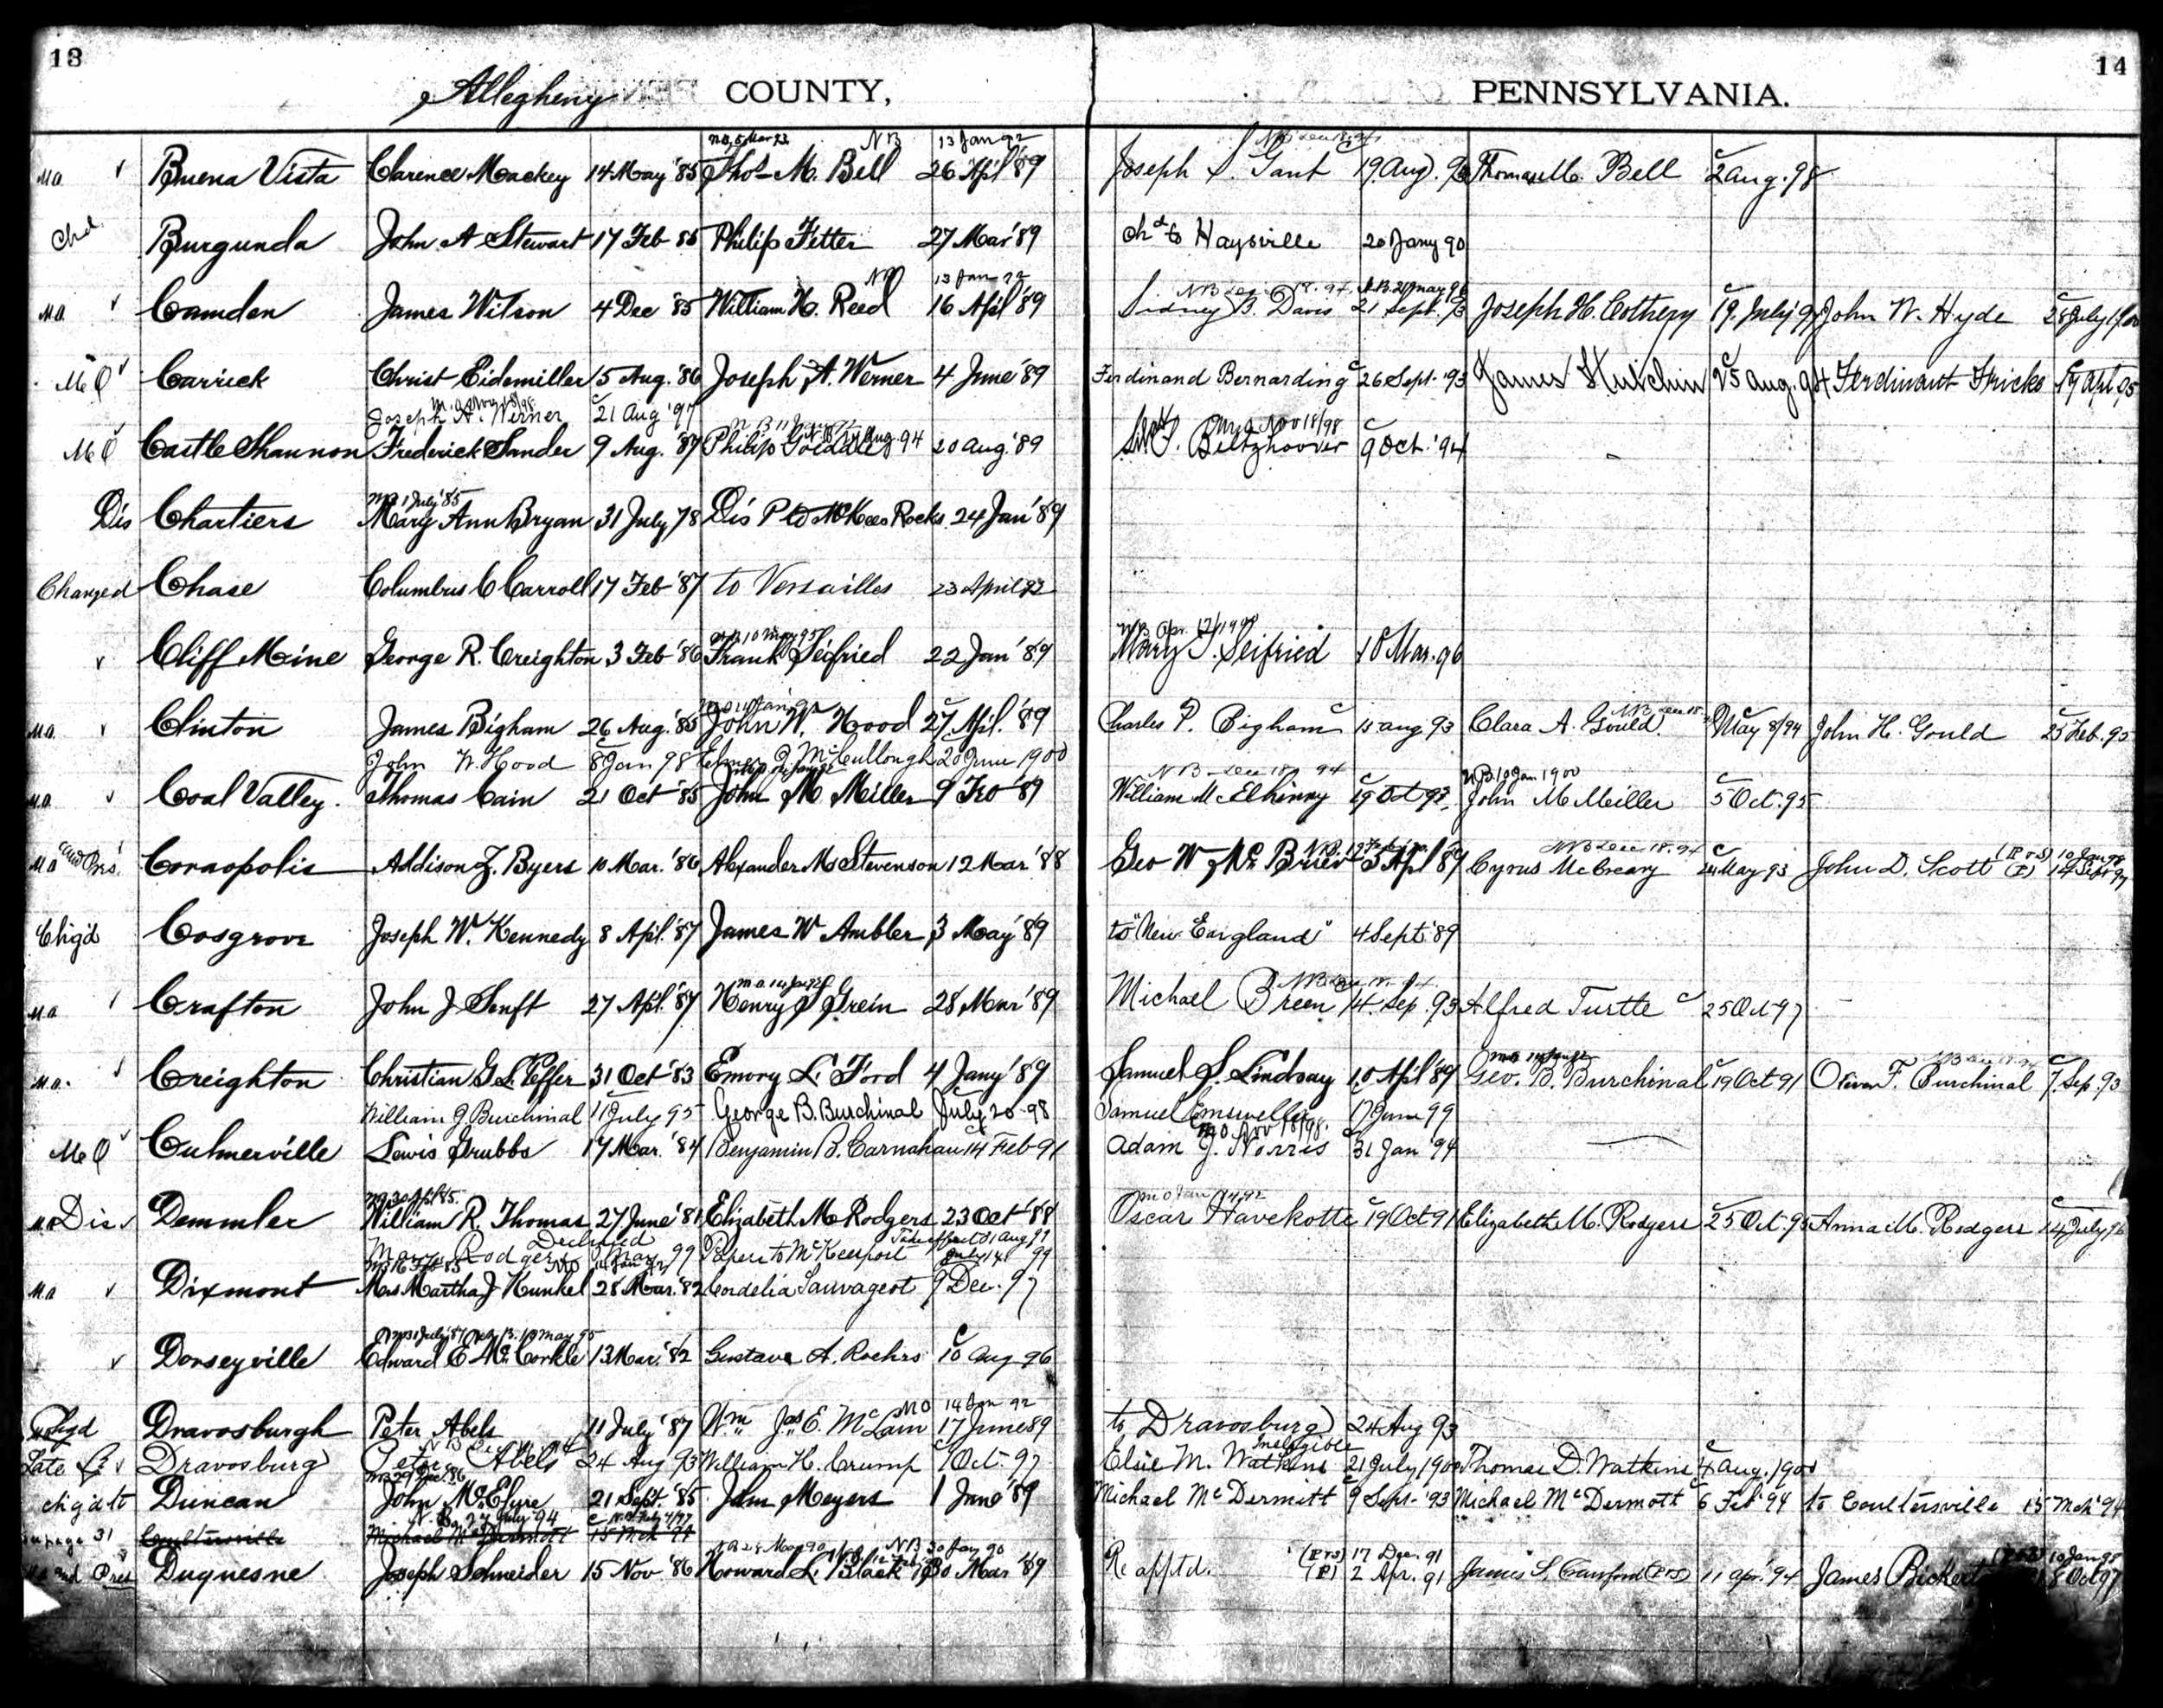 13
14
Allegheny COUNTY, PENNSYLVANIA.
NB 13 Jan 92
MO ✓ Buena Vista Clarence Mackey 14 May '85 Thos M. Bell 26 Apl '89 Joseph S. Gant 19 Aug. 93 Thomas M. Bell 2 Aug. 98
Chd Burgunda John A Stewart 17 Feb 85 Philip Fetter 27 Mar '89 chd to Haysville 20 Jany 90
NB 13 Jan 92 NB Dec 18. 94 N.B. 21 May 96
MO ✓ Camden James Wilson 4 Dec '85 William H. Reed 16 Apl '89 Sidney B. Davis 21 Sept. 93 Joseph H. Cothery 19 July 97 John W. Hyde 28 July 1900
MO ✓ Carrick Christ Eidemiller 5 Aug. '86 Joseph A. Werner 4 June '89 Ferdinand Bernarding 26 Sept. '93 James Hutchin 25 Aug. 94 Ferdinant Fricks 19 Apl. 95
Joseph A. Werner 21 Aug '97
MO Nov 18/98
MO Castle Shannon Frederick Sander 9 Aug. '87 Philip 20 Aug '89 Beltzhoover 9 Oct. '94
MO 1 July '85
Dis Chartiers Mary Ann Bryan 31 July 78 Dis P to McKees Rocks 24 Jan '89
Changed Chase Columbus C Carroll 17 Feb '87 to Versailles 23 April 92
N.B. 10 May 95 N.B. Apr. 12/1900
✓ Cliff Mine George R. Creighton 3 Feb '86 Frank Seifried 22 Jan '89 Mary J. Seifried 10 Mar. 96
MO 14 Jan 92
MO ✓ Clinton James Bigham 26 Aug. '85 John W. Hood 27 Apl. '89 Charles P. Bigham 15 Aug 93 Clara A. Gould May 8/94 John H. Gould 25 Feb. 95
John W. Hood 8 Jan 98 Elmer McCullough 20 June 1900
NB Dec 18 94 N.B. 10 Jan 1900
MO ✓ Coal Valley Thomas Cain 21 Oct '85 John M Miller 9 Feb '89 William McElhinny 19 Oct 93 John M Miller 5 Oct. 95
NB Dec 18. 94 (P & S) 10 Jan 98
MO and Pres. Coraopolis Addison Z. Byers 10 Mar. '86 Alexander M Stevenson 12 Mar '88 Geo W. McBrier 3 Apl '89 Cyrus McCreary 24 May 93 John D. Scott (P) 14 Sept 97
Chg'd Cosgrove Joseph W. Kennedy 8 Apl. '87 James W Ambler 3 May '89 to "New England" 4 Sept '89
MO ✓ Crafton John J Senft 27 Apl. '87 Henry S Grein 28 Mar '89 Michael Breen 14 Sep. 93 Alfred Turtle 25 Oct 97
MO ✓ Creighton Christian G. L. Peffer 31 Oct '83 Emory L. Ford 4 Jany '89 Samuel S. Lindsay 10 Apl '89 Geo. B. Burchinal 19 Oct 91 Oliver F. Burchinal 7 Sep. 93
William J. Burchinal 11 July 95 George B. Burchinal July 20 98 Samuel Emsweller 17 June 99
MO Nov 18/98.
MO ✓ Culmerville Lewis Grubbs 17 Mar. '84 Benjamin B. Carnahan 14 Feb 91 Adam J. Norris 31 Jan '94
MO 30 Apl 85. MO Jan 14, 92
MO Dis ✓ Demmler William R. Thomas 27 June '81 Elizabeth M Rodgers 23 Oct '88 Oscar Havekotte 19 Oct 91 Elizabeth M. Rodgers 25 Oct. 95 Anna M. Rodgers 14 July 96
Declined Take effect 31 Aug 99
Mary Rodgers May 99 Papers to McKeesport July 14 99
MO ✓ Dixmont Mrs Martha J Kunkel 28 Mar. '82 Cordelia Sauvageot 9 Dec. 97
✓ Dorseyville Edward E McCorkle 13 Mar. '82 Gustave A. Roehrs 10 Aug 96
MO 14 Jan 92
Chgd Dravosburgh Peter Abels 11 July '87 Wm Jas E. McLain 17 June 89 to Dravosburg 24 Aug 93
Ineligible
Late ✓ Dravosburg Peter Abels 24 Aug 93 William H. Crump 1 Oct. 97 Elsie M. Watkins 21 July 1900 Thomas D. Watkins 4 Aug. 1900
MO 29 Dec. 86
chg'd to Duncan John McElfire 21 Sept. '85 John Meyers 1 June '89 Michael McDermitt 9 Sept. '93 Michael McDermott 6 Feb '94 to Coultersville 15 Mch '94
N.B. 27 July 94
page 31 Coultersville Michael McDermott 15 Mch '94
NB 28 Mar 90 NB 30 Jan 90 (P & S) 17 Dec. 91 10 Jan 98
MO and Pres Duquesne Joseph Schneider 15 Nov '86 Howard L. Black 30 Mar '89 Re apptd. (P) 2 Apr. 91 James S. Crawford (P & S) 11 Apr. '94 James Bickert 8 Oct 97